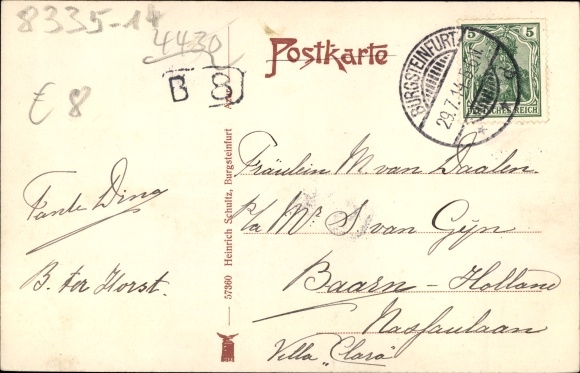 8335-14
4430
Postkarte
BURGSTEINFURT
29.7.14.
5
DEUTSCHES REICH
B 8
€ 8
Fräulein M. van Daalen
p/a Mr S. van Gijn
Baarn - Holland
Nassaulaan
Villa "Clara"
Tante Dina
B. ter Horst.
57360 Heinrich Schultz, Burgsteinfurt